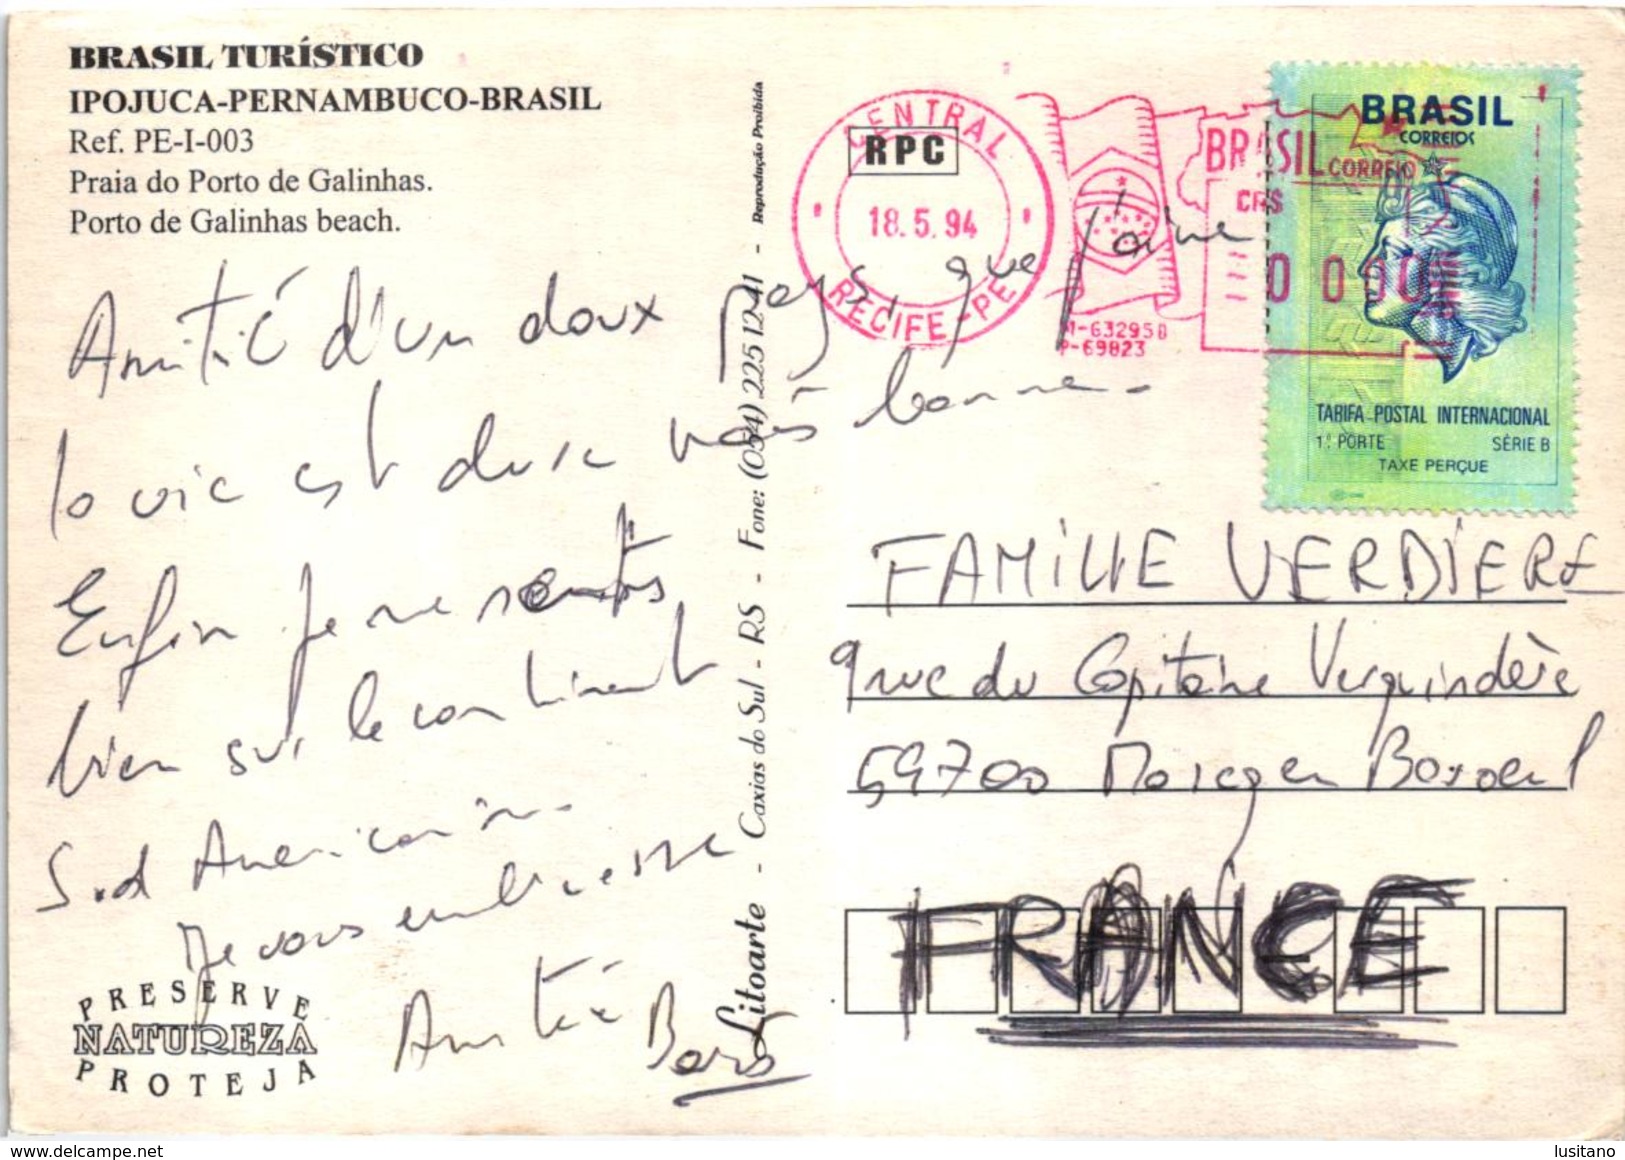 BRASIL TURÍSTICO
IPOJUCA-PERNAMBUCO-BRASIL
Ref. PE-I-003
Praia do Porto de Galinhas.
Porto de Galinhas beach.
Amitié d'un doux pays, que j'aime
la vie est dure mais bonne.
Enfin je me sens très
bien sur le continent
Sud Américain.
Je vous embrasse
Amitié
PRESERVE
NATUREZA
PROTEJA
Litoarte - Caxias do Sul - RS - Fone: (054) 225 12 41 - Reprodução Proibida
CENTRAL
RPC
18.5.94
RECIFE-PE
BRASIL CORREIO
CR$
M-632958
P-69823
BRASIL
CORREIOS
TARIFA POSTAL INTERNACIONAL
1.º PORTE SÉRIE B
TAXE PERÇUE
FAMILLE VERDIERE
9 rue du Capitaine
59700 Marcq en Baroeul
FRANCE
lusitano